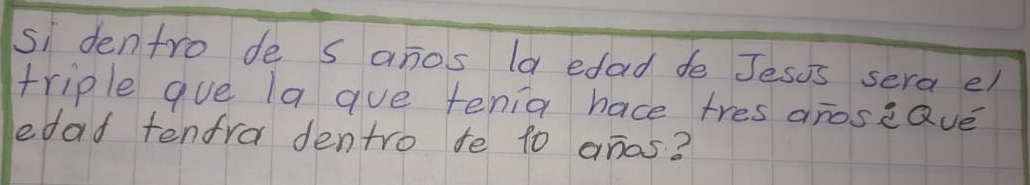 si dentro de 5 años la edad de Jesús sera el
triple que la que tenía hace tres años¿Qué
edad tendra dentro de 10 años?